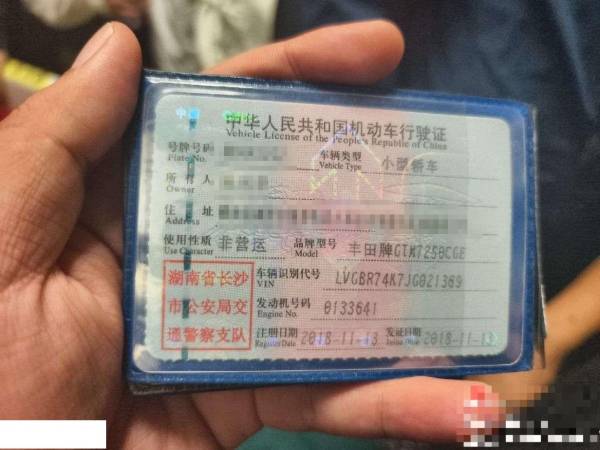 中国
中华人民共和国机动车行驶证
Vehicle License of the People's Republic of China
号牌号码
Plate No.
车辆类型 小型轿车
Vehicle Type
所有人
Owner
住址
Address
使用性质 非营运 品牌型号 丰田牌GTM7250CGE
Use Character Model
湖南省长沙
市公安局交
通警察支队
车辆识别代号 LVGBR74K7JG021369
VIN
发动机号码 0133641
Engine No.
注册日期 2018-11-13 发证日期 2018-11-13
Register Date Issue Date